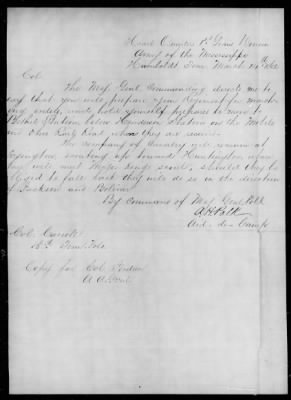 Head Quarters 1st Grand Division
Army of the Mississippi
Humboldt Tenn March 14th 1862
Col
The Maj Genl Commanding directs me to
say that you will prepare your Regiment for
and hold yourself prepared to move to
Bethel Station below Henderson Station on the Mobile
and Ohio Rail Road when they are received.
The company of Cavalry will remain at
Lexington, scouting up towards Huntingdon, where
they will meet Major Kings scouts, should they be
obliged to fall back they will do so in the direction
of Jackson and Bolivar
By command of Maj Genl Polk
Aid-de-Camp
Col. Carroll
Tenn. Vols.
Copy for Col
A A Genl